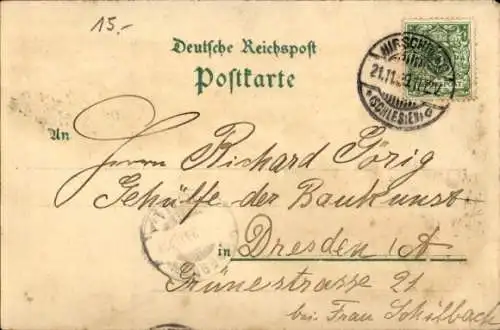 15.-
Deutsche Reichspost
Postkarte
HIRSCHBERG
21.11.
(SCHLESIEN)
An
Herrn Richard Görig
Gehülfe der Baukunst
in Dresden /A
Grünestrasse 21
bei Frau Schilbach